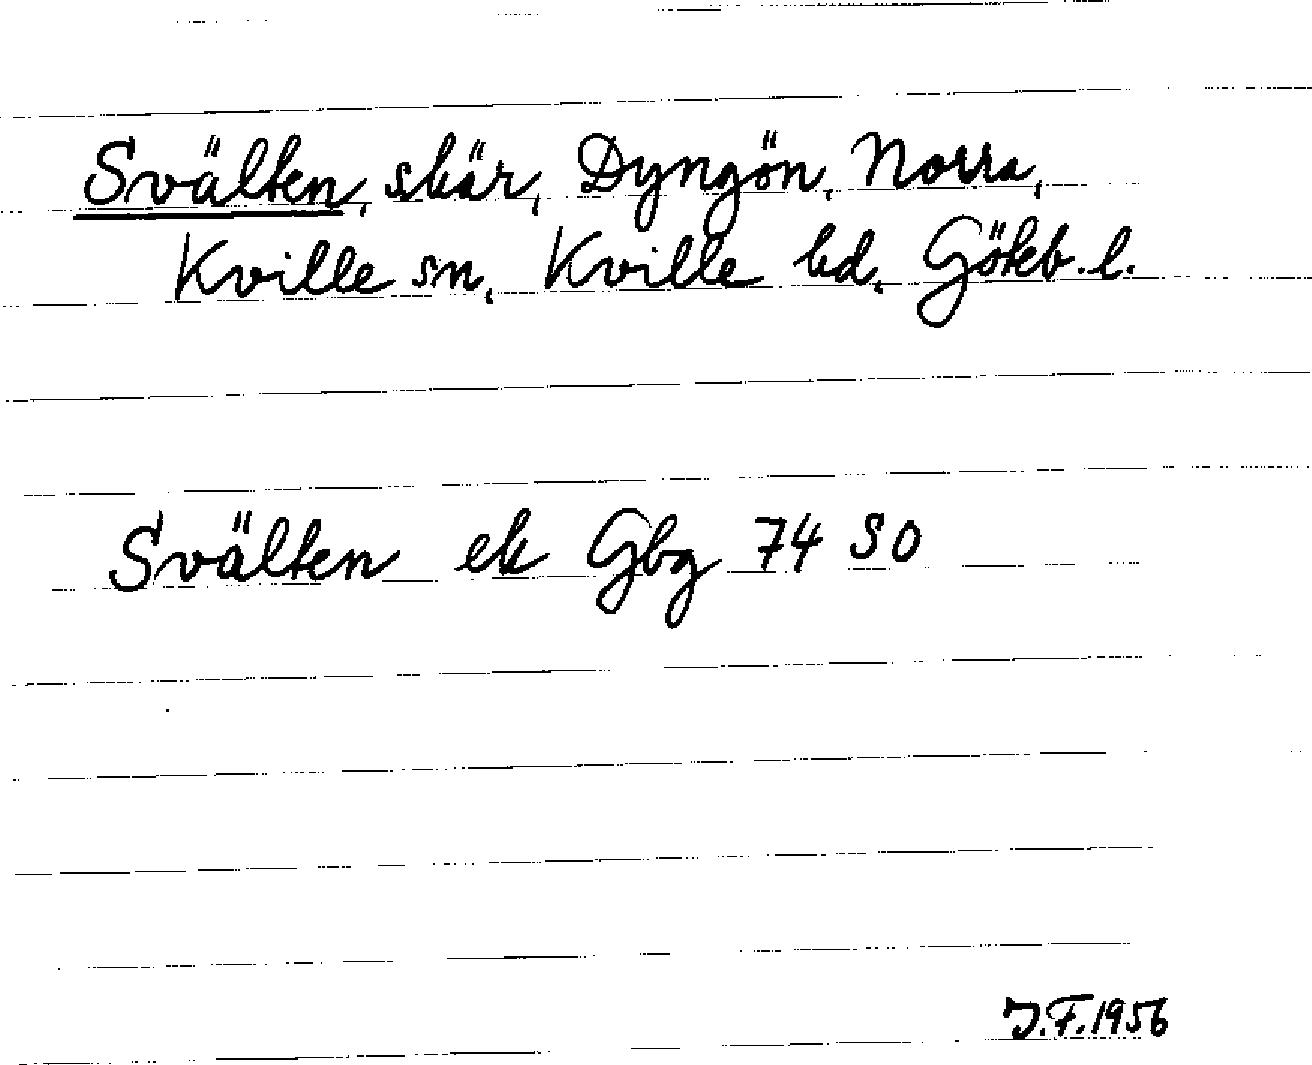 Svälten, skär, Dyngön, Norra,
Kville sn, Kville hd, Göteb. l.
Svälten ek Gbg 74 SO
J.F. 1956